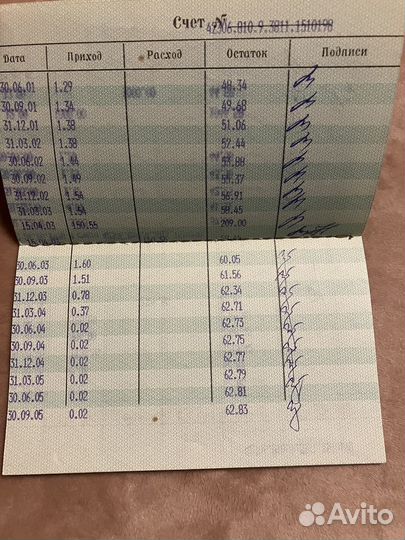 Счет № 42306.810.9.3811.1510198
Дата Приход Расход Остаток Подписи
30.06.01 1.29 48.34
30.09.01 1.34 49.68
31.12.01 1.38 51.06
31.03.02 1.38 52.44
30.06.02 1.44 53.88
30.09.02 1.49 55.37
31.12.02 1.54 56.91
31.03.03 1.54 58.45
15.04.03 150.55 209.00
30.06.03 1.60 60.05
30.09.03 1.51 61.56
31.12.03 0.78 62.34
31.03.04 0.37 62.71
30.06.04 0.02 62.73
30.09.04 0.02 62.75
31.12.04 0.02 62.77
31.03.05 0.02 62.79
30.06.05 0.02 62.81
30.09.05 0.02 62.83
Avito